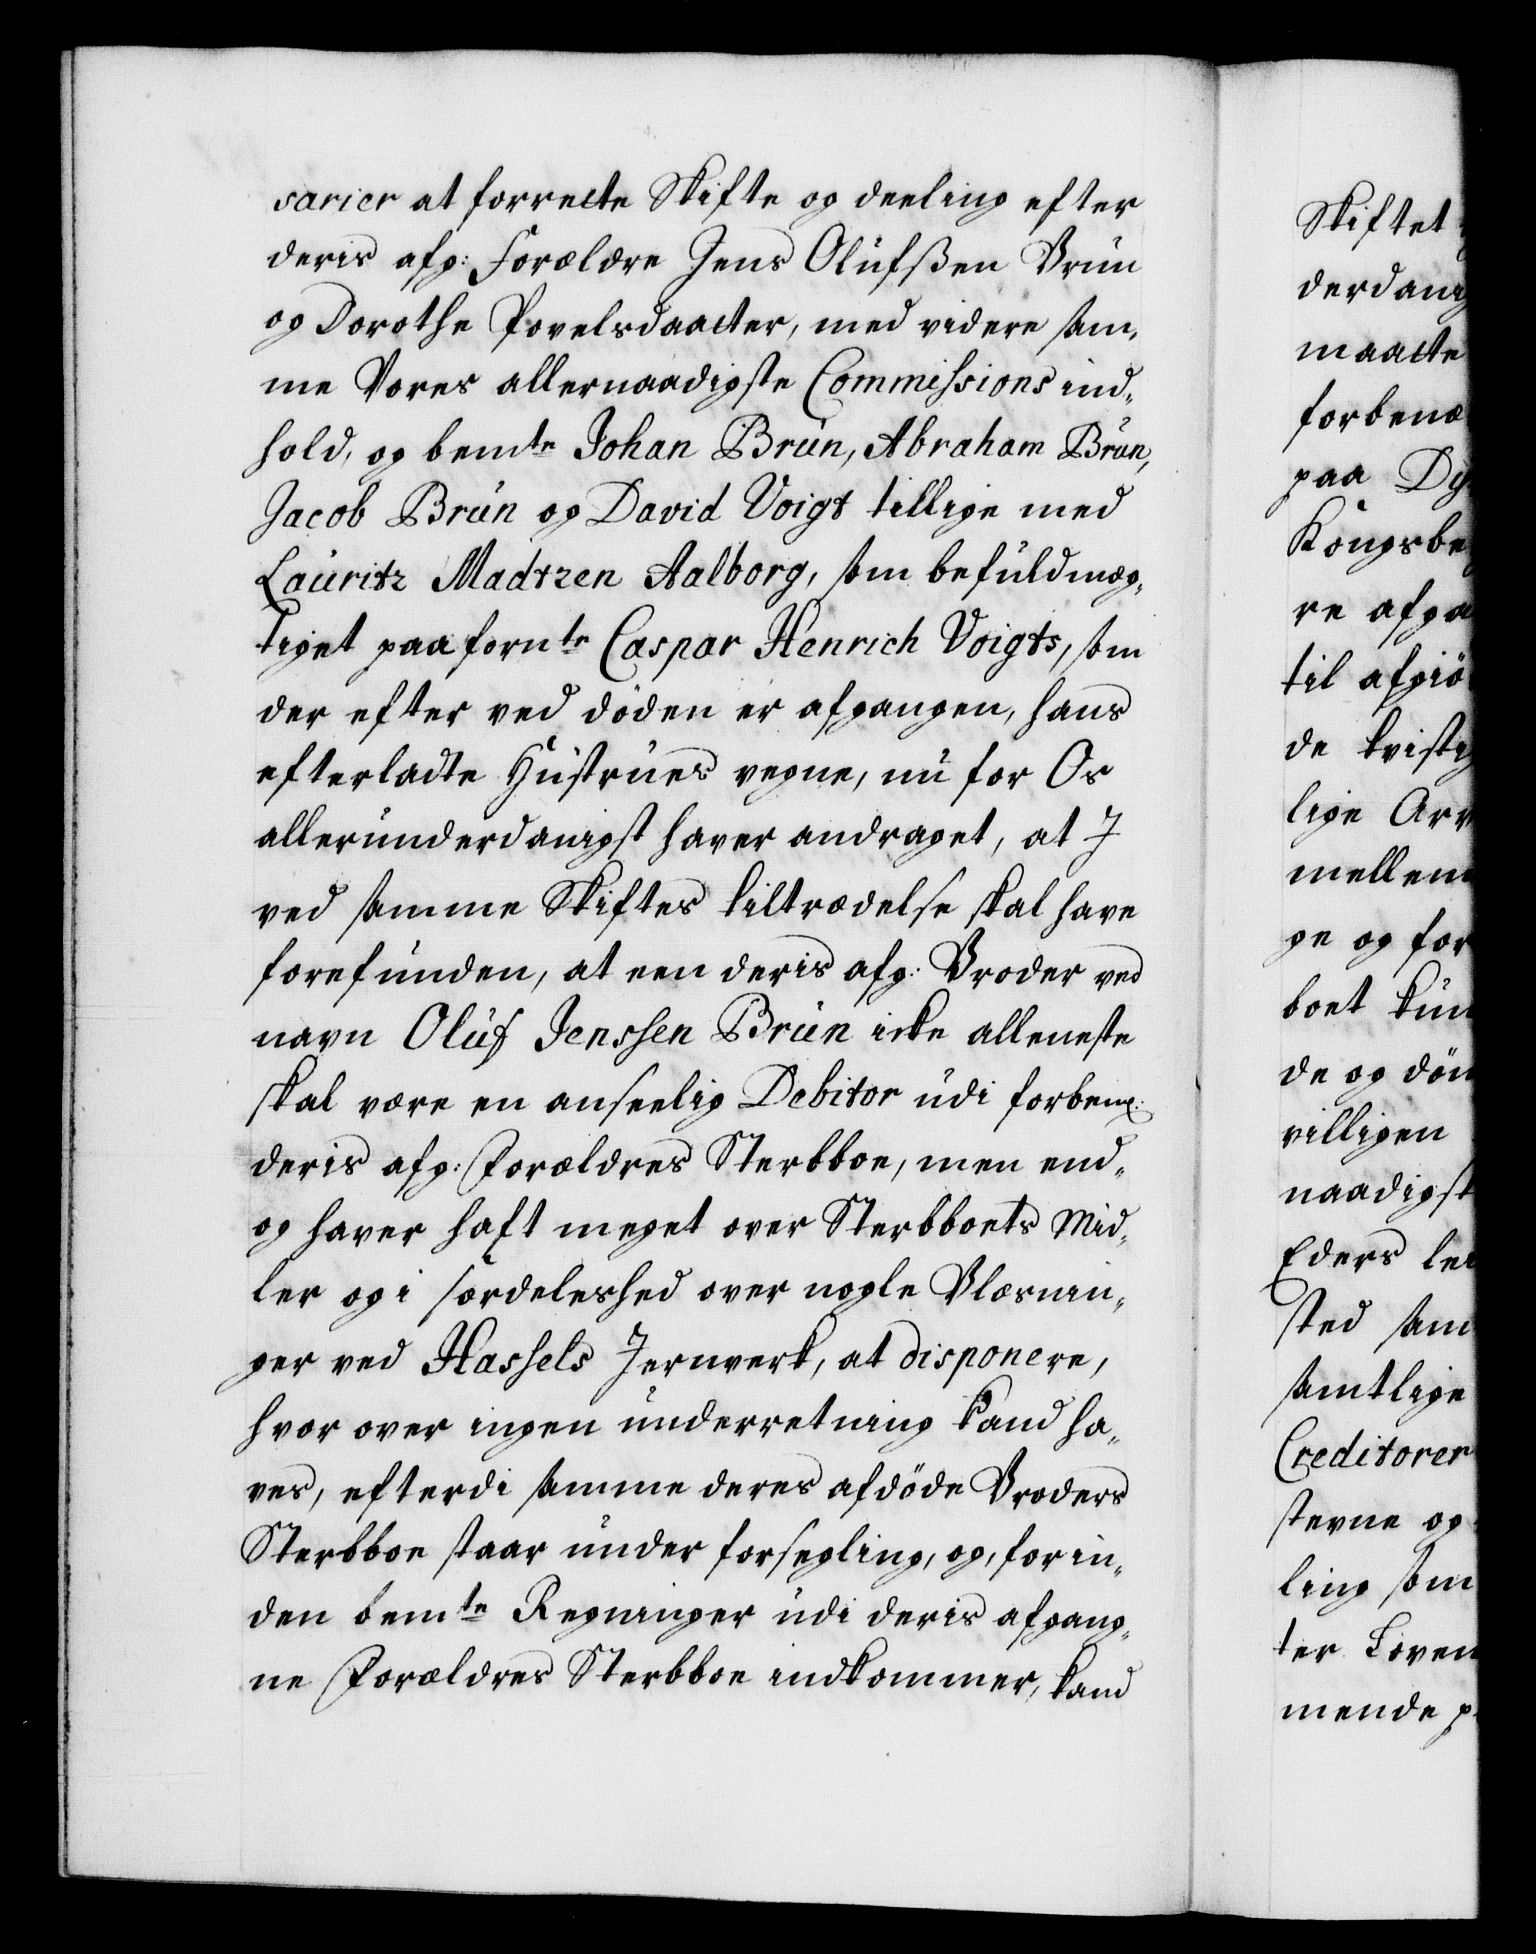 sarier at forrette Skifte og deeling efter
deris afg: Forældre Jens Olufßen Brun
og Dorothe Povelsdaatter, med videre sam„
me Vores allernaadigste Commissions ind„
hold, og bemte Johan Brun, Abraham Brun,
Jacob Brun og David Voigt tillige med
Lauritz Madtzen Aalborg, som befuldmæg„
tiget paa fornte Caspar Henrich Voigts, som
der efter ved döden er afgangen, hans
efterladte Hustrues vegne, nu for Os
allerunderdanigst haver andraget, at I
ved samme Skiftes tiltrædelse skal have
forefunden, at een deris afg: Broder ved
navn Oluf Jenssen Brun icke alleneste
skal være en anseelig Debitor udi forbem:
deris afg: Forældres Sterbboe, men end„
og haver haft meget over Sterbboets Mid„
ler og i særdeleshed over nogle Blæsnin„
ger ved Hassels Jernverk, at disponere,
hvor over ingen underretning kand ha„
ves, efterdi samme deres afdöde Broders
Sterbboe staar under forsegling, og, for in„
den bemte Regninger udi deris afgang„
ne Forældres Sterbboe indkommer, kand
Skiftet
derdanig
maatte
forbene
paa Dy
Kongsbe
re afga
til afgiö
de tvistig
lige Arv
mellem
ge og for
boet kun
de og döm
villigen
naadigst
Eders le
sted sam
samtlige
Creditorer
stevne og
ling som
ter Loven
mende p